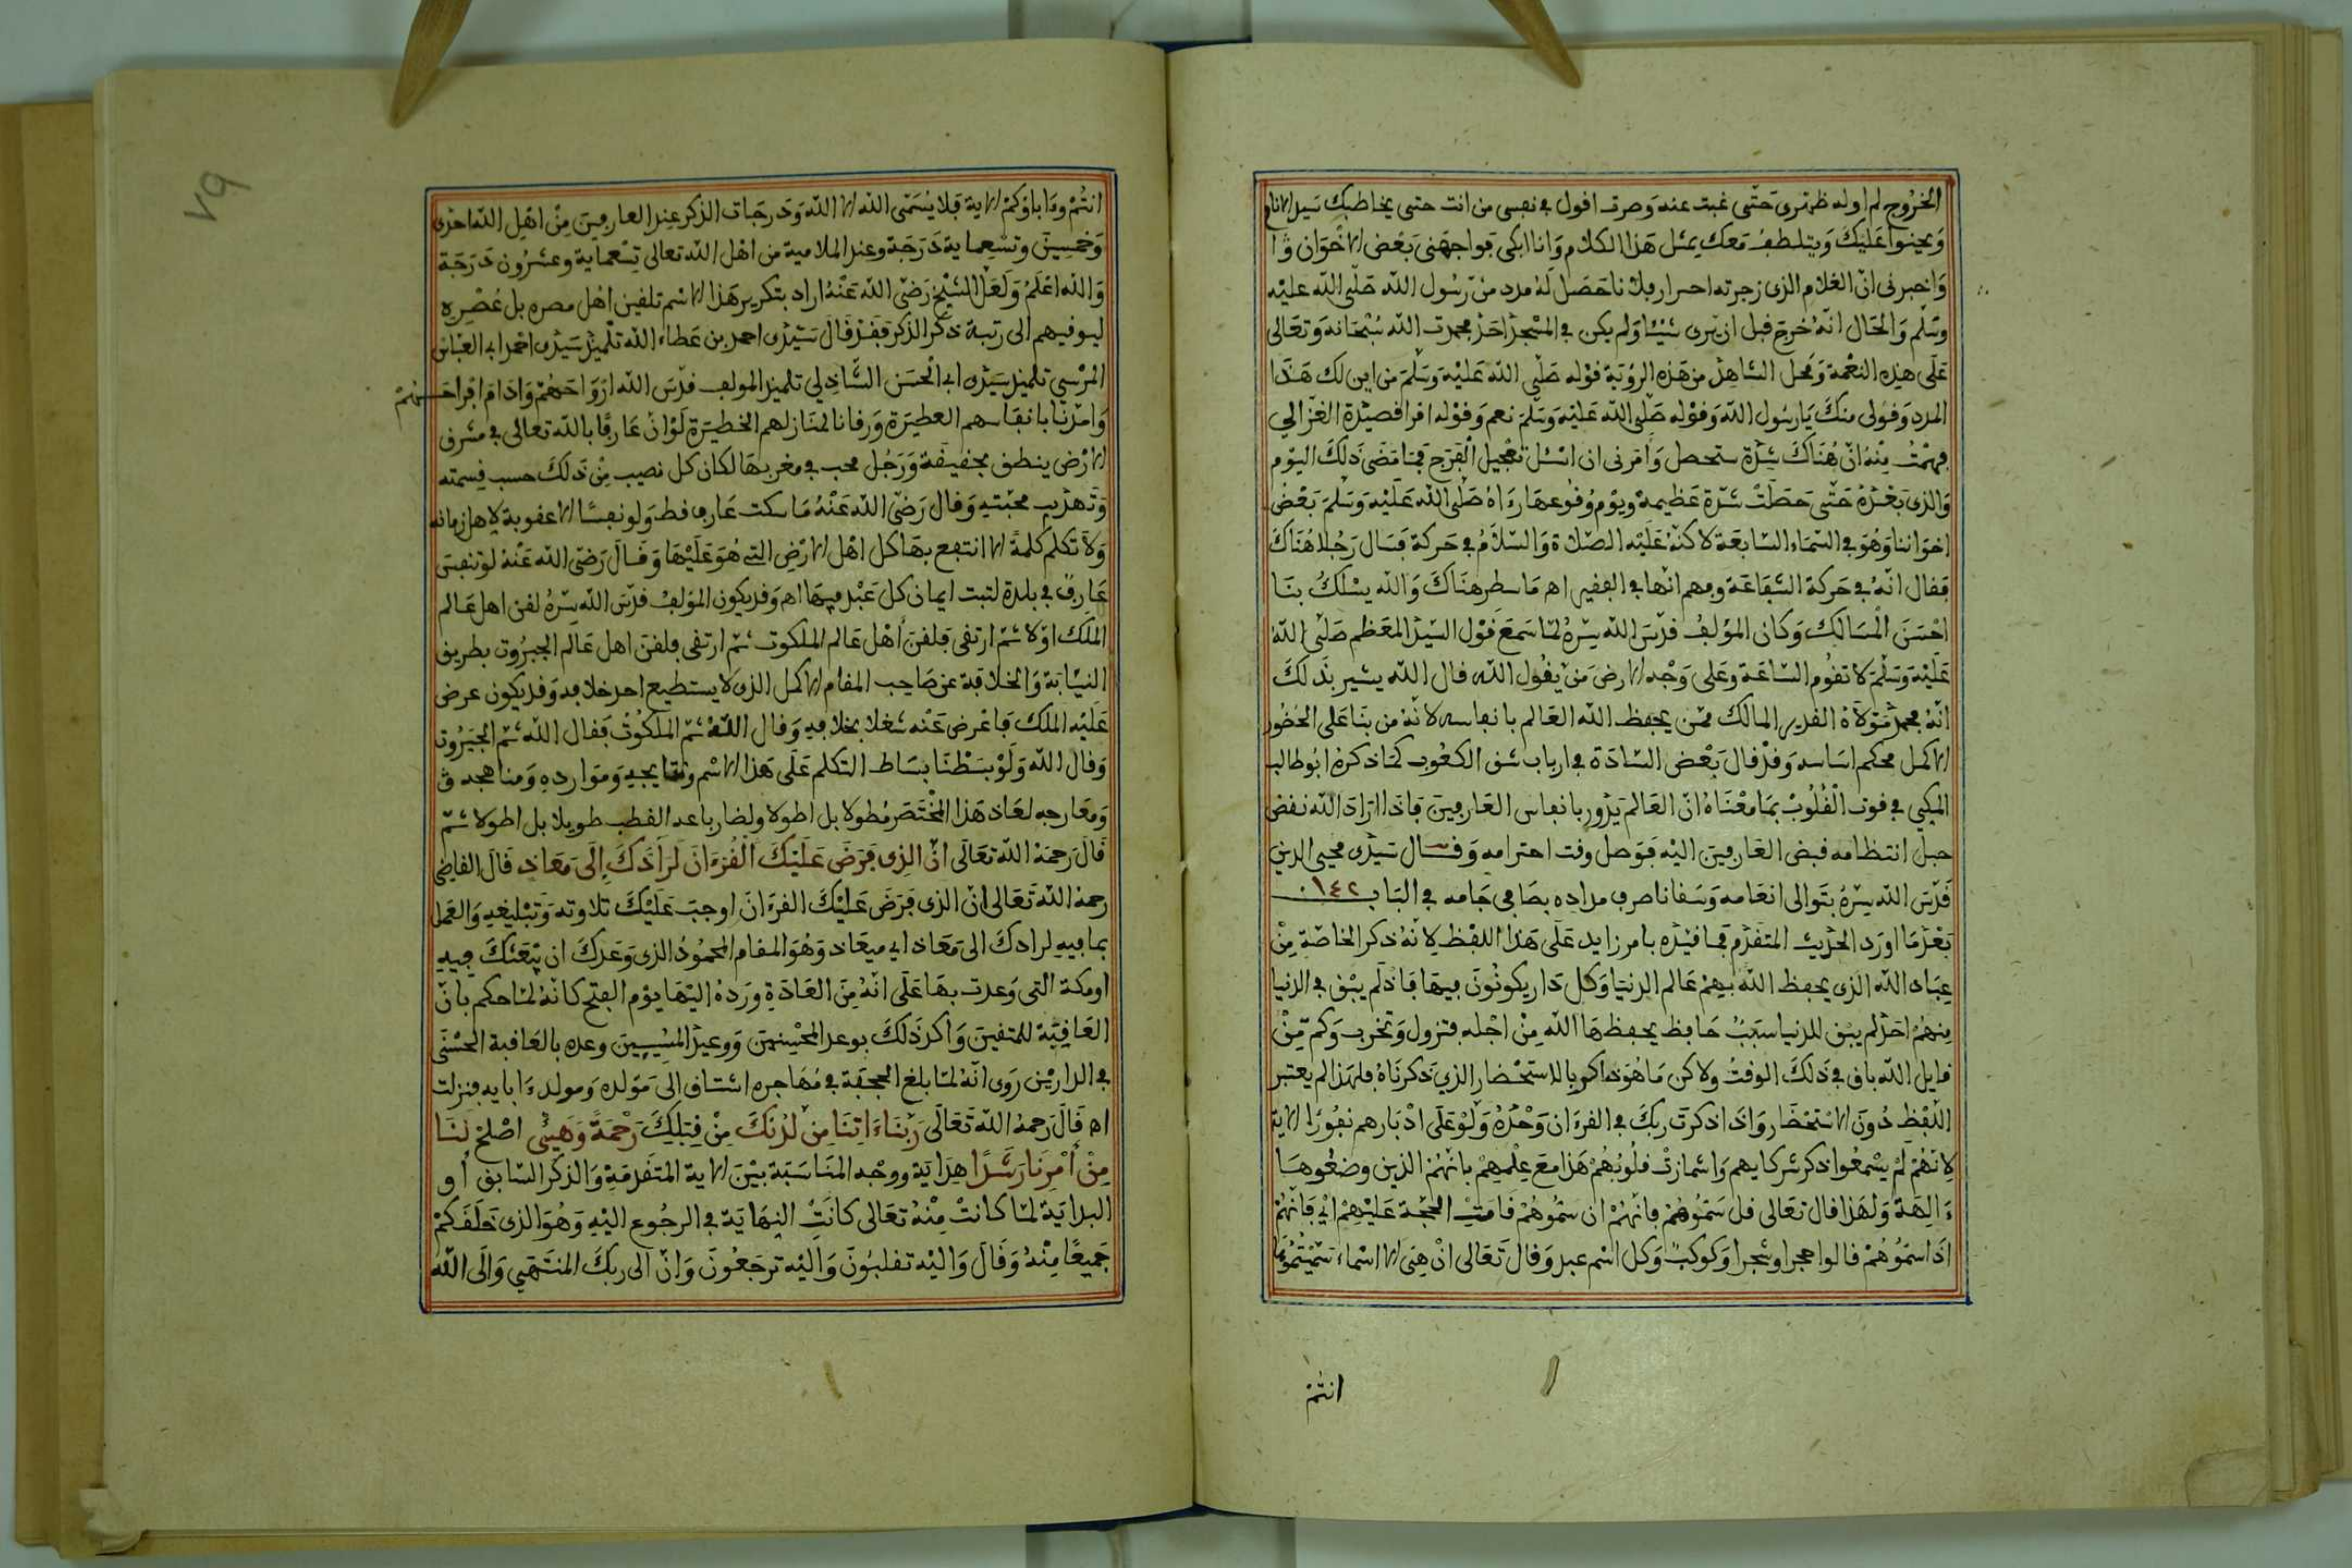 الخروج لم اوله ظهرى حتى غبت عنه وصرت اقول في نفسى من انت حتى يخاطبك سيد الانام
ويحنوا عليك ويتلطف معك بمثل هذا الكلام وانا ابكى فواجهنى بعض الاخوان
واخبرنى ان الغلام الذى زجرته احس ار فلانا حصل له مدد من رسول الله صلى الله عليه
وسلم والحال انه خرج قبل ان يرى شيئا ولم يكن في المسجد احد فحمدت الله سبحانه وتعالى
على هذه النعمة ومحل الشاهد من هذه الرؤية قوله صلى الله عليه وسلم من اين لك هذا
المدد وقولى منك يارسول الله وقوله صلى الله عليه وسلم نعم وقوله اقرا قصيدة الغزالي
فهمت منه ان هناك شدة ستحصل وامرنى ان اسئل تعجيل الفرج فما مضى ذلك اليوم
والذى بعده حتى حصلت شدة عظيمة ويوم وقوعها رءاه صلى الله عليه وسلم بعض
اخواننا وهو في السماء السابعة لاكنه عليه الصلاة والسلام في حركة فسال رجلا هناك
فقال انه في حركة الشفاعة وفهم انها في الفقير اه ما سطر هناك والله يسلك بنا
احسن المسالك وكان المؤلف قدس الله سره لما سمع قول السيد المعظم صلى الله
عليه وسلم لا تقوم الساعة وعلى وجه الارض من يقول الله قال الله يشير بذلك
انه بحمد مولاه القدير المالك ممن يحفظ الله العالم بانفاسه لانه من بنا على الحضور
الاكمل محكم اساسه وقد قال بعض السادة في ارباب شق الكعوب كما ذكره ابوطالب
المكي في قوت القلوب بما معناه ان العالم يدور بانفاس العارفين فاذا اراد الله نقض
حبل انتظامه قبض العارفين اليه فوصل وقت اخترامه وقال سيدى محيي الدين
قدس الله سره بتوالى انعامه وسقانا صرف مداده بصافى جامه في الباب ١٤٢
بعد ما اورد الحديث المتقدم فما قيده بامر زايد على هذا اللفظ لانه ذكر الخاصة من
عباد الله الذى يحفظ الله بهم عالم الدنيا وكل دار يكونون فيها فاذ لم يبق في الدنيا
منهم احد لم يبق للدنيا سبب حافظ يحفظها الله من اجله فتزول وتخرب وكم من
قايل الله باق في ذلك الوقت ولاكن ما هو ذاكر بالاستحضار الذي ذكرناه فلهذا لم يعتبر
اللفظ دون الاستحضار واذا ذكرت ربك في القرءان وحده ولو على ادبارهم نفورا الاية
لانهم لم يسمعوا ذكر شركايهم واشمازت قلوبهم هذا مع علمهم بانهم الذين وضعوها
ءالهة ولهذا قال تعالى قل سموهم فانهم ان سموهم قامت الحجة عليهم اي فانهم
اذا سموهم قالوا حجرا وشجرا وكوكب وكل اسم عبد وقال تعالى ان هى الا اسماء سميتموها
انتم
انتم وءاباؤكم الاية فلا يسمى الله الا الله ودرجات الذكر عند العارفين من اهل الله احدى
وخمسين وتسعماية درجة وعند الملامية من اهل الله تعالى تسعماية وعشرون درجة
والله اعلم ولعل الشيخ رضى الله عنه اراد بتكرير هذا الاسم تلقين اهل مصره بل عصره
ليوفيهم الى رتبة ذكر الذكر فقد قال سيدى احمد بن عطاء الله تلميذ سيدى احمد ابى العباس
المرسي تلميذ سيدى ابى الحسن الشاذلي تلميذ المولف قدس الله ارواحهم وادام افراحهم
وامدنا بانفاسهم العطيرة ورقانا لمنازلهم الخطيرة لو ان عارفا بالله تعالى في مشرق
الارض ينطق بحقيقة ورجل محب في مغربها لكان كل نصيب من ذلك حسب قسمته
وتهذيب محبته وقال رضى الله عنه ما سكت عارف قط ولو نفسا الا عقوبة لاهل زمانه
ولا تكلم كلمة الا انتفع بها كل اهل الارض التى هو عليها وقال رضى الله عنه لو تنفس
عارف في بلدة لثبت ايمان كل عبد فيها اه وقد يكون المؤلف قدس الله سره لقن اهل عالم
الملك اولا ثم ارتقى فلقن اهل عالم الملكوت ثم ارتقى فلقن اهل عالم الجبروت بطريق
النيابة والخلافة عن صاحب المقام الاكمل الذى لا يستطيع احد خلافه وقد يكون عرض
عليه الملك فاعرض عنه شغلا بخلافه وقال الله ثم الملكوت فقال الله ثم الجبروت
وقال الله ولو بسطنا بساط التكلم على هذا الاسم ونتايجه وموارده ومناهجه
ومعارجه لعاد هذا المختصر مطولا بل اطولا ولضارباعه القطب طويلا بل اطولا ثم
قال رحمه الله تعالى ان الذى فرض عليك القرءان لرادك الى معاد قال القاضى
رحمه الله تعالى ان الذى فرض عليك القرءان اوجب عليك تلاوته وتبليغه والعمل
بما فيه لرادك الى معاد اى ميعاد وهو المقام المحمود الذى وعدك ان يبعثك فيه
اومكة التى وعدت بها على انه من العادة ورده اليها يوم الفتح كانه لما حكم بان
العاقبة للمتقين واكد ذلك بوعد المحسنين ووعيد المسيىين وعده بالعاقبة الحسنى
في الدارين روى انه لما بلغ الجحفة في مهاجره اشتاق الى مولده ومولد ءابايه فنزلت
اه قال رحمه الله تعالى ربنا ءاتنا من لدنك من قبلك رحمة وهيىء اصلح لنا
من امرنا رشدا هداية ووجه المناسبة بين الاية المتقدمة والذكر السابق او
البداية لما كانت منه تعالى كانت النهاية في الرجوع اليه وهو الذى خلقكم
جميعا منه وقال واليه تقلبون واليه ترجعون وان الى ربك المنتهى والى الله
٧٩